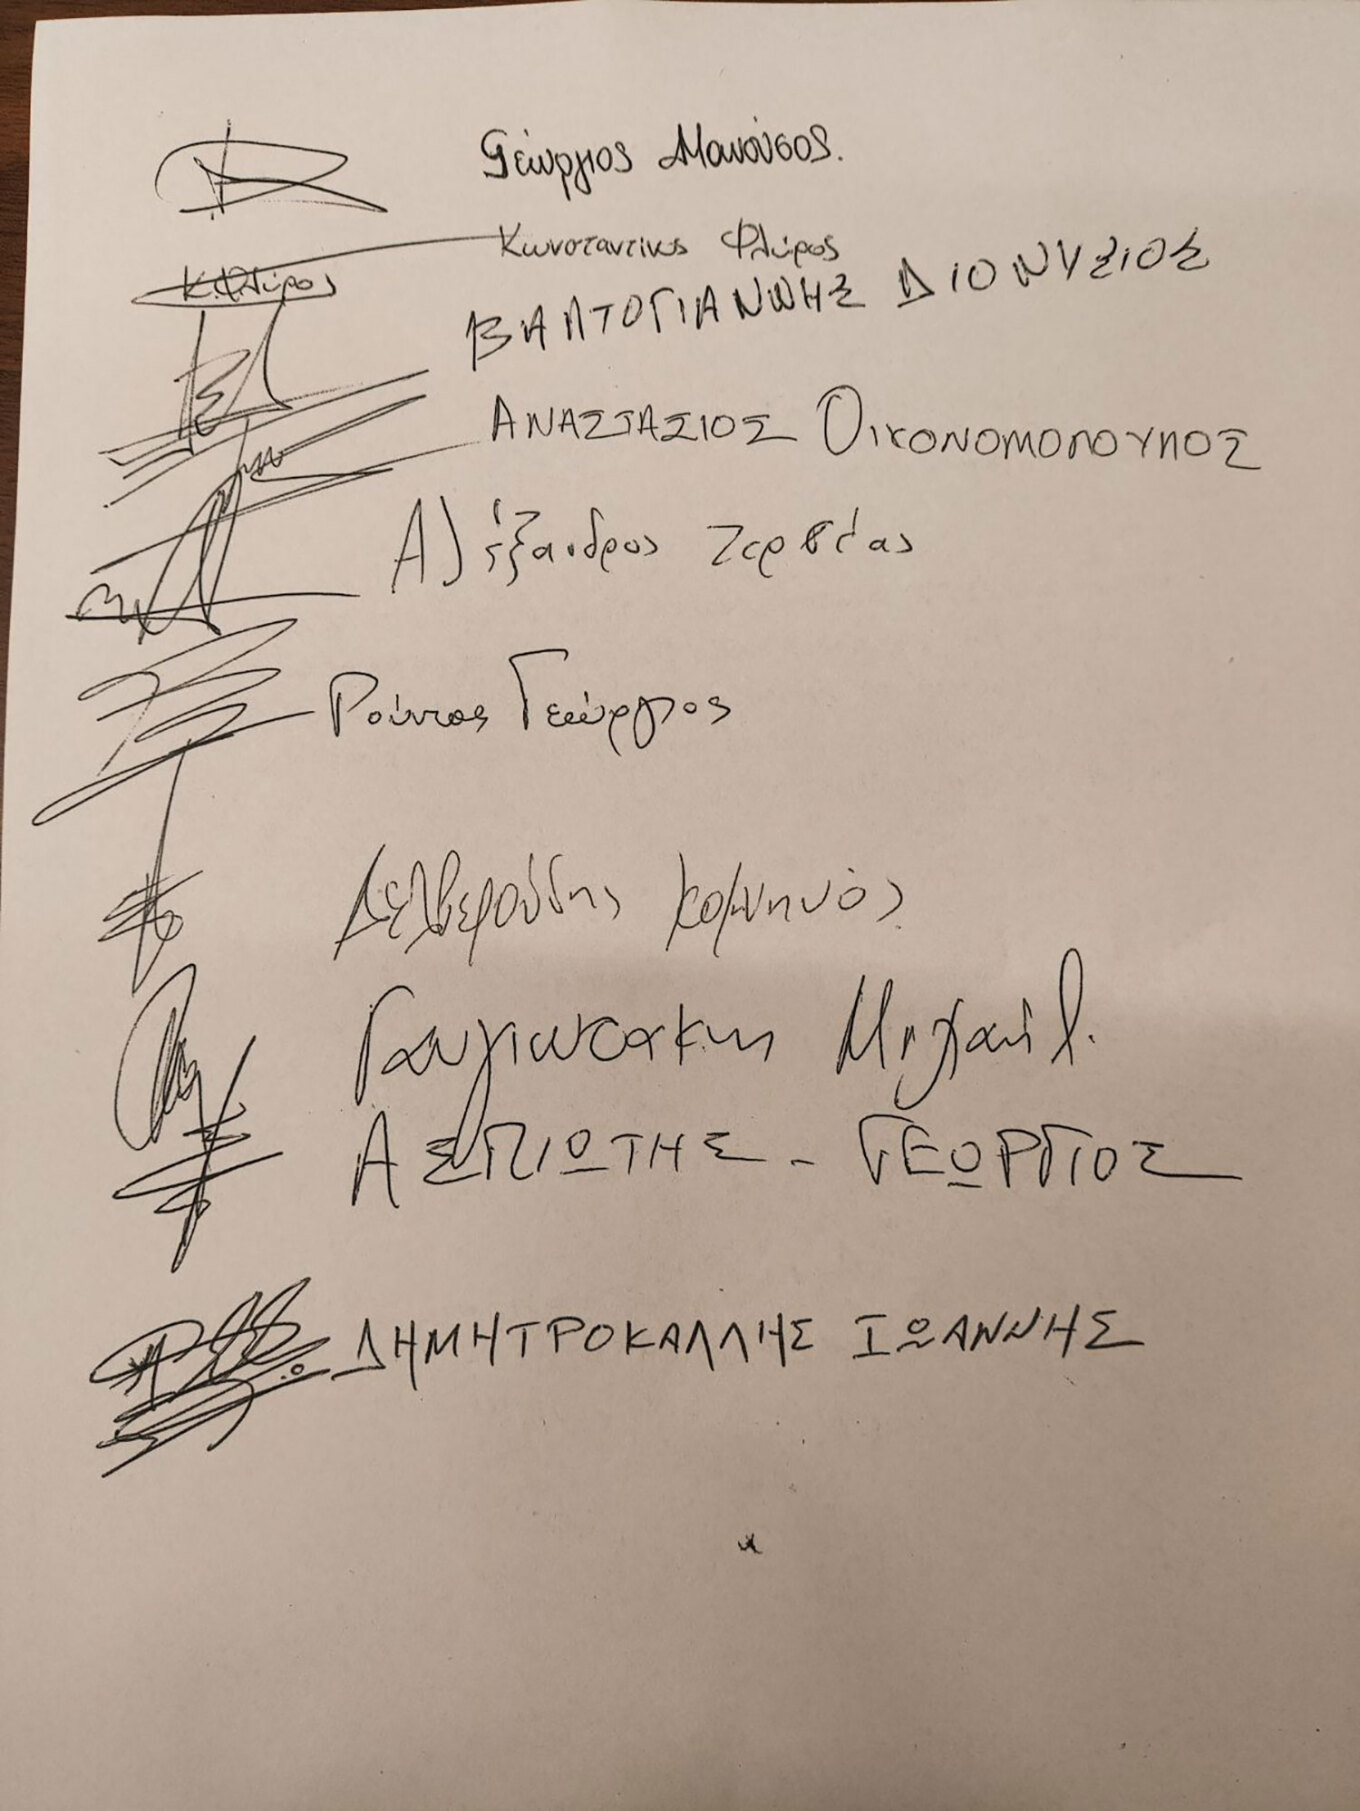 Γεώργιος Μανούσος.
Κωνσταντίνος Φλώρος
Κ.Φλώρος
ΒΑΛΤΟΓΙΑΝΝΗΣ ΔΙΟΝΥΣΙΟΣ
ΑΝΑΣΤΑΣΙΟΣ ΟΙΚΟΝΟΜΟΠΟΥΛΟΣ
Αλέξανδρος
Γεώργιος
Δελβερούδης Κομνηνός
Μιχαήλ.
ΑΣΠΙΩΤΗΣ - ΓΕΩΡΓΙΟΣ
ΔΗΜΗΤΡΟΚΑΛΛΗΣ ΙΩΑΝΝΗΣ